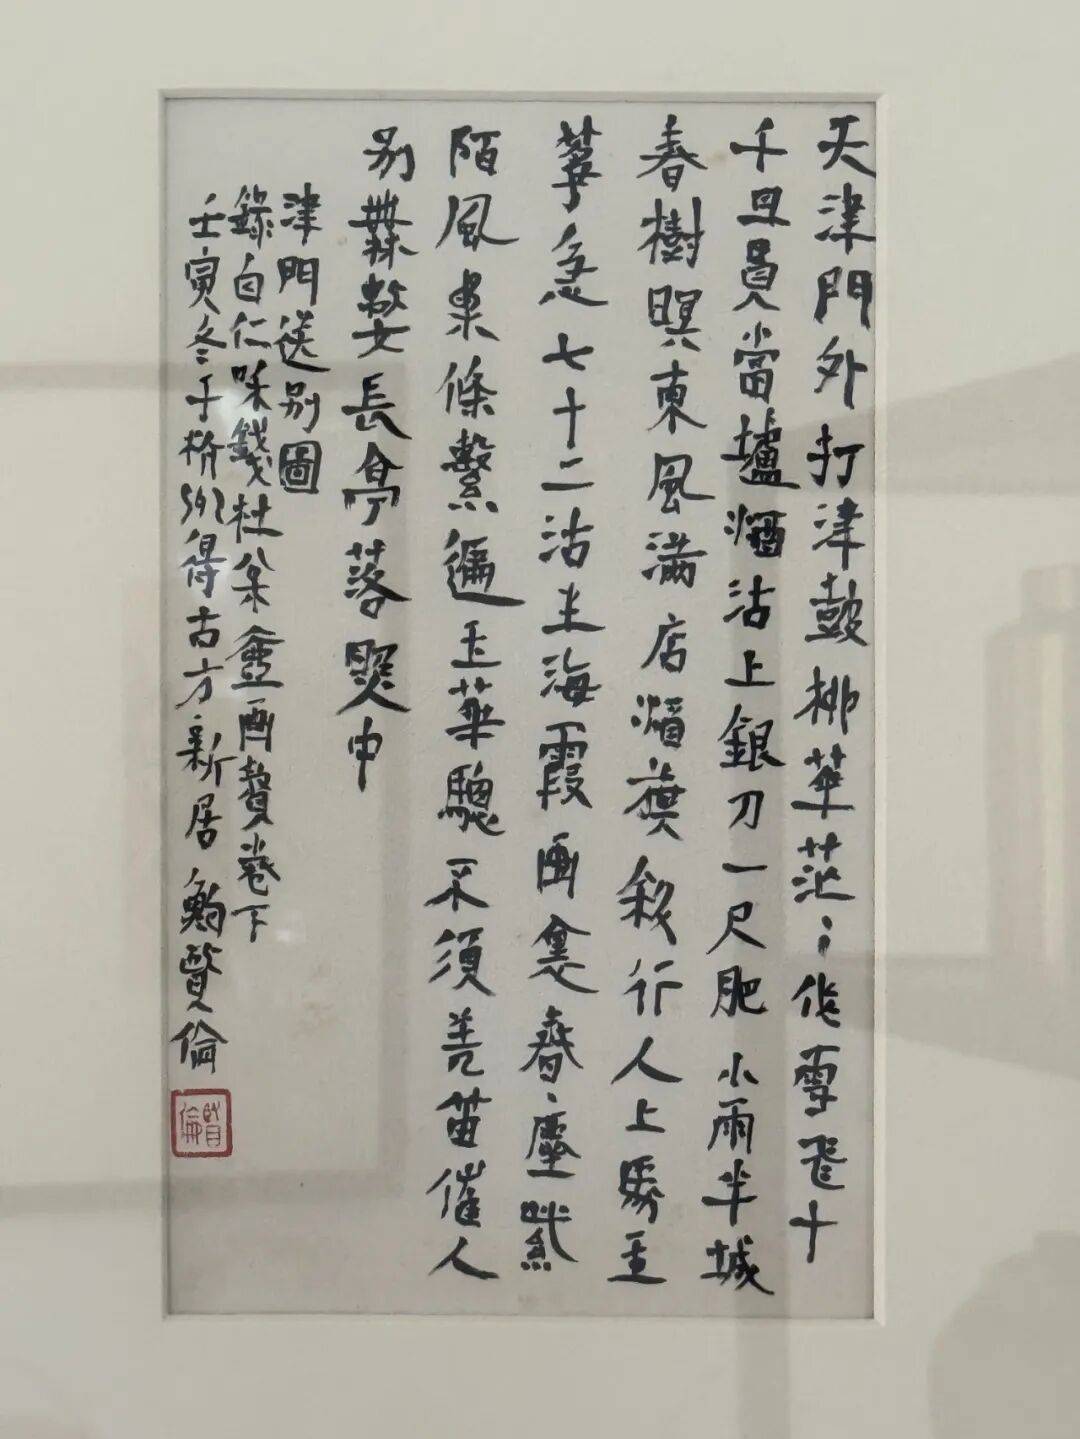 天津門外打津鼓柳華茫〻作雪飛十
千且當壚酒沽上銀刀一尺肥小雨半城
春樹暝東風滿店酒旗斜行人上馬玉
箏急七十二沽生海霞画裏香塵紫
陌風柔條繫遍玉華驄不須羌笛催人
别無數長亭落照中
津門送别圖
録自仁和錢杜松壺画贅卷下
壬寅冬于杭州得古方新居賢倫
賢倫